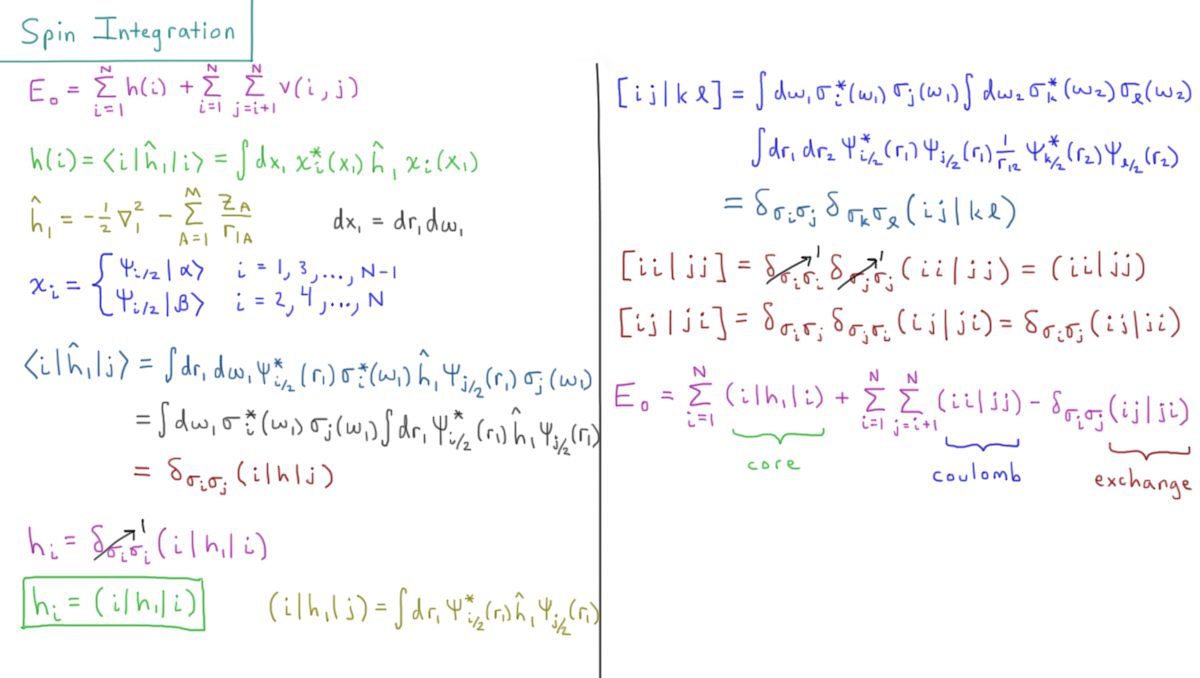 Spin Integration
E₀ = Σ_{i=1}^{N} h(i) + Σ_{i=1}^{N} Σ_{j=i+1}^{N} v(i,j)
h(i) = ⟨i|ĥ₁|i⟩ = ∫dx₁ χᵢ*(x₁) ĥ₁ χᵢ(x₁)
ĥ₁ = -½∇₁² - Σ_{A=1}^{M} Z_A/r_{1A}    dx₁ = dr₁dω₁
χᵢ = { Ψ_{i/2}|α⟩ i = 1, 3, ..., N-1
Ψ_{i/2}|β⟩ i = 2, 4, ..., N
⟨i|ĥ₁|j⟩ = ∫dr₁ dω₁ Ψ*_{i/2}(r₁) σᵢ*(ω₁) ĥ₁ Ψ_{j/2}(r₁) σⱼ(ω₁)
= ∫dω₁ σᵢ*(ω₁) σⱼ(ω₁) ∫dr₁ Ψ*_{i/2}(r₁) ĥ₁ Ψ_{j/2}(r₁)
= δ_{σᵢσⱼ} (i|h|j)
hᵢ = δ_{σᵢσᵢ} 1 (i|h₁|i)
hᵢ = (i|h₁|i)    (i|h₁|j) = ∫dr₁ Ψ*_{i/2}(r₁) ĥ₁ Ψ_{j/2}(r₁)
[ij|kℓ] = ∫dω₁ σᵢ*(ω₁) σⱼ(ω₁) ∫dω₂ σₖ*(ω₂) σ_ℓ(ω₂)
∫dr₁ dr₂ Ψ*_{i/2}(r₁) Ψ_{j/2}(r₁) 1/r₁₂ Ψ*_{k/2}(r₂) Ψ_{ℓ/2}(r₂)
= δ_{σᵢσⱼ} δ_{σₖσ_ℓ} (ij|kℓ)
[ii|jj] = δ_{σᵢσᵢ} 1 δ_{σⱼσⱼ} 1 (ii|jj) = (ii|jj)
[ij|ji] = δ_{σᵢσⱼ} δ_{σⱼσᵢ} (ij|ji) = δ_{σᵢσⱼ} (ij|ji)
E₀ = Σ_{i=1}^{N} (i|h₁|i) + Σ_{i=1}^{N} Σ_{j=i+1}^{N} (ii|jj) - δ_{σᵢσⱼ} (ij|ji)
core coulomb exchange